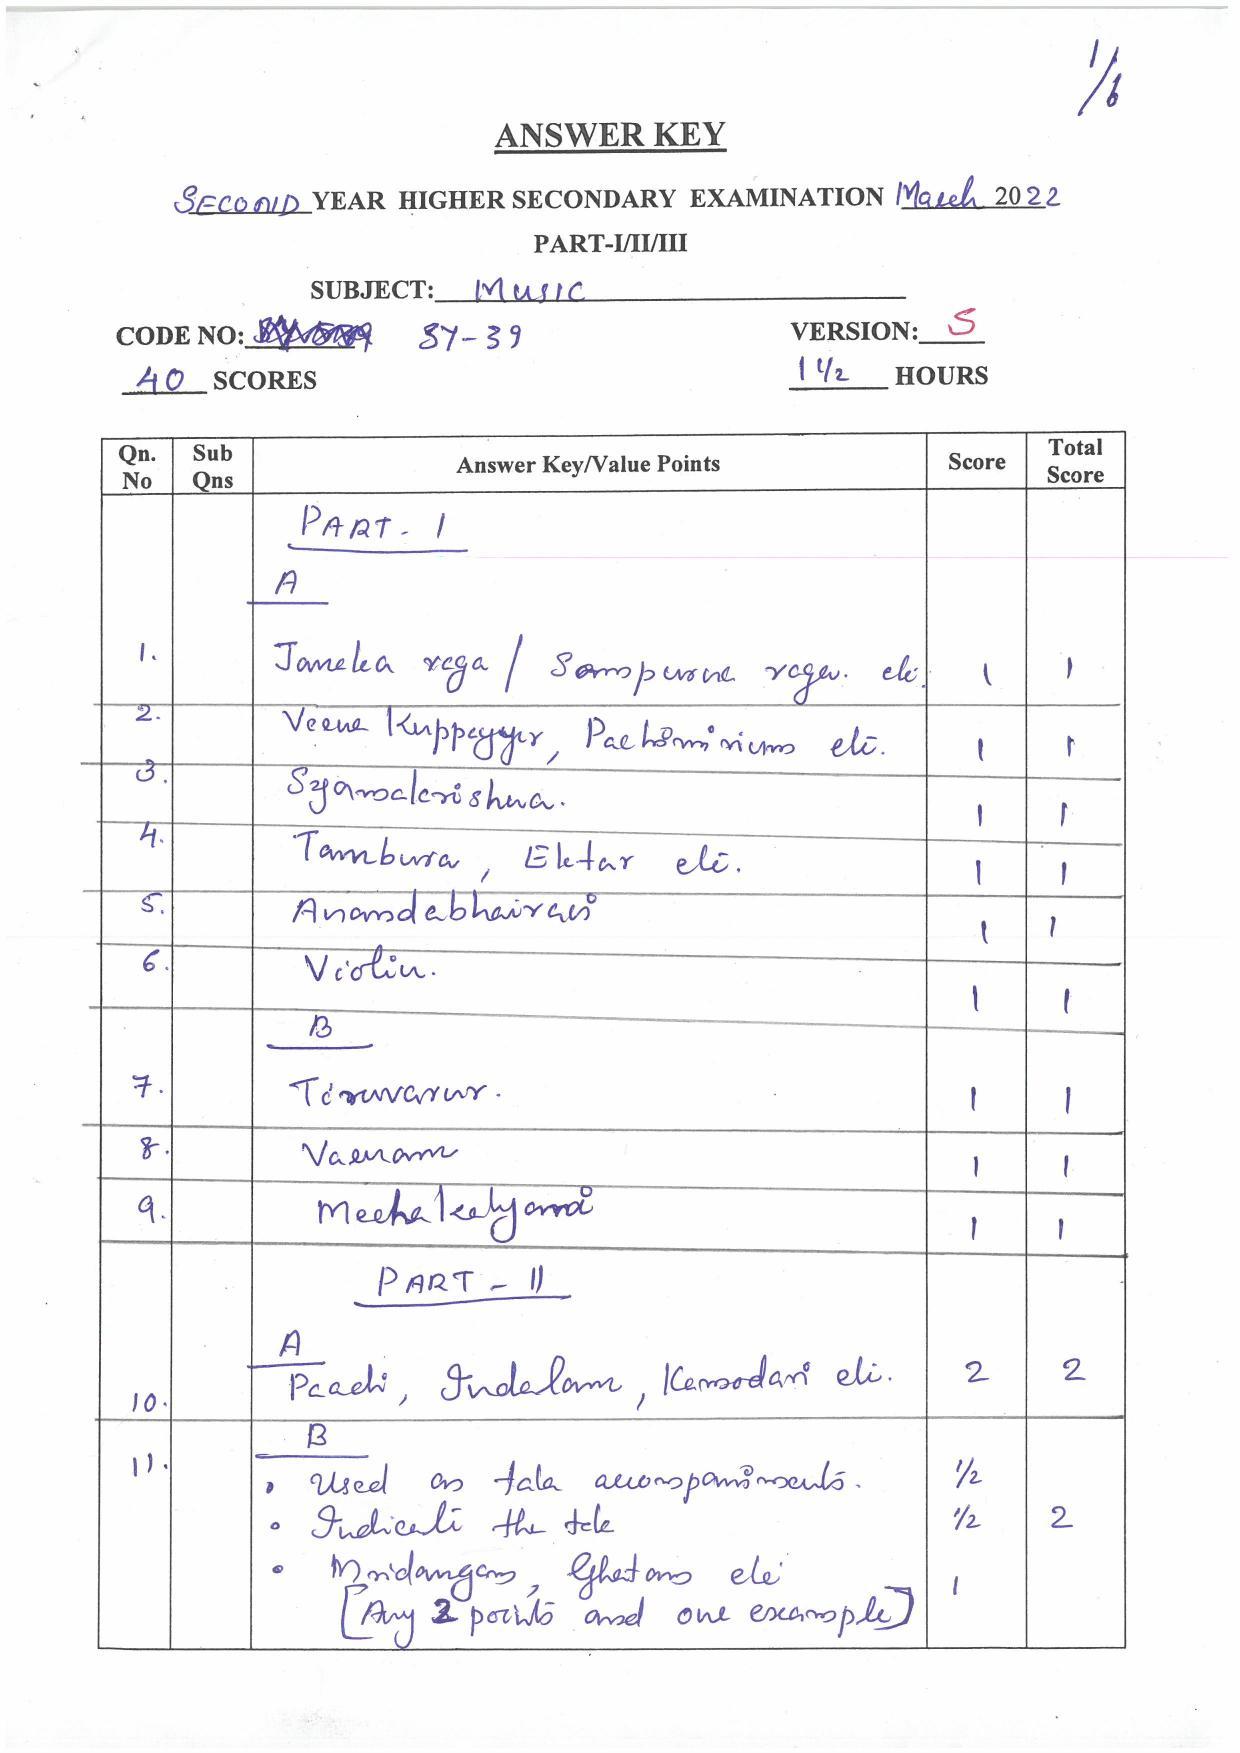 1/6
ANSWER KEY
SECOND YEAR HIGHER SECONDARY EXAMINATION March 2022
PART-I/II/III
SUBJECT: Music
CODE NO: SY-39 VERSION: S
40 SCORES 1 1/2 HOURS
Qn. No Sub Qns Answer Key/Value Points Score Total Score
PART - I
A
1. Janaka raga / Sampurna raga. etc. 1 1
2. Veena Kuppayyer, Pachimiriums etc. 1 1
3. Syamakrishna. 1 1
4. Tambura, Ektar etc. 1 1
5. Anandabhairavi 1 1
6. Violin. 1 1
B
7. Tiruvarur. 1 1
8. Varnam 1 1
9. Mechakalyani 1 1
PART - II
A
10. Paadi, Indalam, Kamodari etc. 2 2
B
11. • Used as tala accompaniments. 1/2
• Indicate the tala 1/2 2
• Mridangam, Ghatam etc 1
[Any 2 points and one example]